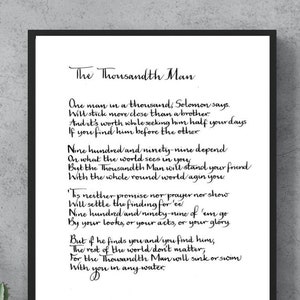 The Thousandth Man
One man in a thousand, Solomon says.
Will stick more close than a brother.
And it's worth while seeking him half your days
If you find him before the other.
Nine hundred and ninety-nine depend
On what the world sees in you,
But the Thousandth Man will stand your friend
With the whole round world agin you.
'Tis neither promise nor prayer nor show
Will settle the finding for 'ee.
Nine hundred and ninety-nine of 'em go
By your looks, or your acts, or your glory.
But if he finds you and you find him,
The rest of the world don't matter;
For the Thousandth Man will sink or swim
With you in any water.